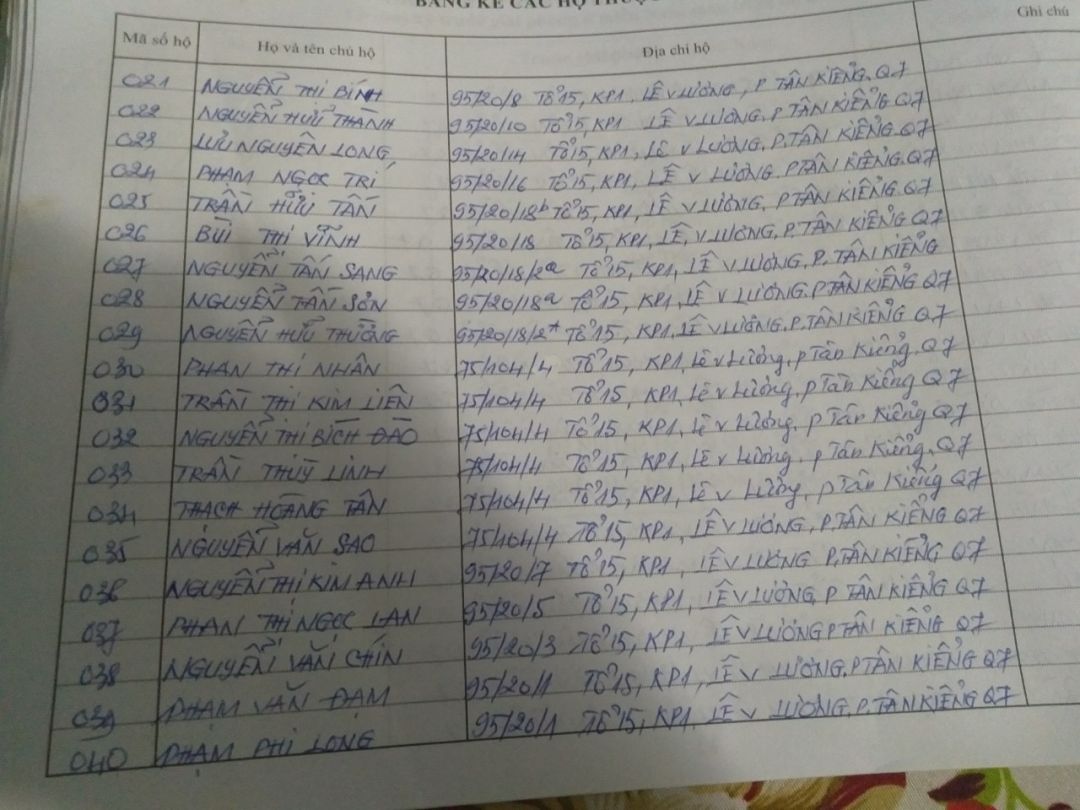 BẢNG KÊ CÁC HỘ THUỘC
Mã số hộ Họ và tên chủ hộ Địa chỉ hộ Ghi chú
021 NGUYỄN THỊ BÍNH 95/20/8 Tổ 15, KP1, LÊ V LƯƠNG, P TÂN KIỂNG, Q7
022 NGUYỄN HỮU THANH 95/20/10 Tổ 15, KP1 LÊ V LƯƠNG, P TÂN KIỂNG Q7
023 LƯU NGUYÊN LONG 95/20/14 Tổ 15, KP1, Lê V LƯƠNG, P.TÂN KIỂNG, Q7
024 PHẠM NGỌC TRÍ 95/20/16 Tổ 15, KP1, LÊ V LƯƠNG. P TÂN KIỂNG. Q7
025 TRẦN HỮU TẤN 95/20/18b Tổ 15, KP1, LÊ V LƯƠNG, P TÂN KIỂNG. Q7
026 BÙI THỊ VĨNH 95/20/18 Tổ 15, KP1, LÊ, V LƯƠNG, P. TÂN KIỂNG Q7
027 NGUYỄN TẤN SANG 95/20/18/2a Tổ 15, KP1, LÊ V LƯƠNG, P. TÂN KIỂNG
028 NGUYỄN TẤN SƠN 95/20/18a Tổ 15, KP1, LÊ V LƯƠNG. P TÂN KIỂNG Q7
029 NGUYỄN HỮU THƯỞNG 95/20/18/2* Tổ 15, KP1, LÊ V LƯƠNG, P. TÂN KIỂNG Q7
030 PHAN THỊ NHÂN 75/104/4 Tổ 15, KP1, Lê v Lương, p Tân Kiểng, Q7
031 TRẦN THỊ KIM LIÊN 75/104/4 Tổ 15, KP1, Lê v Lương, p Tân Kiểng Q7
032 NGUYỄN THỊ BÍCH ĐÀO 75/104/4 Tổ 15, KP1, Lê v Lương, p Tân Kiểng Q7
033 TRẦN THÙY LINH 75/104/4 Tổ 15, KP1, Lê v Lương, p Tân Kiểng, Q7
034 THẠCH HOÀNG TÂN 75/104/4 Tổ 15, KP1, Lê v Lương, p Tân Kiểng Q7
035 NGUYỄN VĂN SAO 75/104/4 Tổ 15, KP1, LÊ V LƯƠNG, P.TÂN KIỂNG Q7
036 NGUYỄN THỊ KIM ANH 95/20/7 Tổ 15, KP1, LÊ V LƯƠNG P.TÂN KIỂNG Q7
037 PHAN THỊ NGỌC LAN 95/20/5 Tổ 15, KP1, LÊ V LƯƠNG, P TÂN KIỂNG Q7
038 NGUYỄN VĂN CHÍN 95/20/3 Tổ 15, KP1, LÊ V LƯƠNG P TÂN KIỂNG Q7
039 PHẠM VĂN ĐẠM 95/20/1 Tổ 15, KP1, LÊ V LƯƠNG, P TÂN KIỂNG Q7
040 PHẠM PHI LONG 95/20/1 Tổ 15, KP1, LÊ V LƯƠNG, P. TÂN KIỂNG Q7